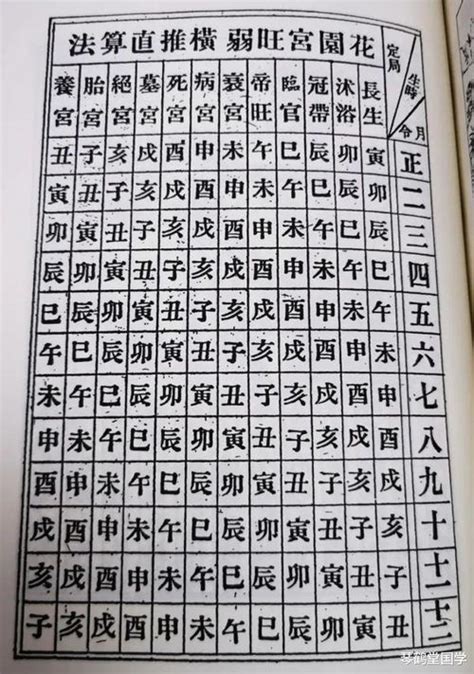 花園宮旺弱橫推直算法
定局 生時 月令
長生 沐浴 冠帶 臨官 帝旺 衰宮 病宮 死宮 墓宮 絕宮 胎宮 養宮
正 寅 卯 辰 巳 午 未 申 酉 戌 亥 子 丑
二 卯 辰 巳 午 未 申 酉 戌 亥 子 丑 寅
三 辰 巳 午 未 申 酉 戌 亥 子 丑 寅 卯
四 巳 午 未 申 酉 戌 亥 子 丑 寅 卯 辰
五 午 未 申 酉 戌 亥 子 丑 寅 卯 辰 巳
六 未 申 酉 戌 亥 子 丑 寅 卯 辰 巳 午
七 申 酉 戌 亥 子 丑 寅 卯 辰 巳 午 未
八 酉 戌 亥 子 丑 寅 卯 辰 巳 午 未 申
九 戌 亥 子 丑 寅 卯 辰 巳 午 未 申 酉
十 亥 子 丑 寅 卯 辰 巳 午 未 申 酉 戌
十一 子 丑 寅 卯 辰 巳 午 未 申 酉 戌 亥
十二 丑 寅 卯 辰 巳 午 未 申 酉 戌 亥 子
琴鹤堂国学